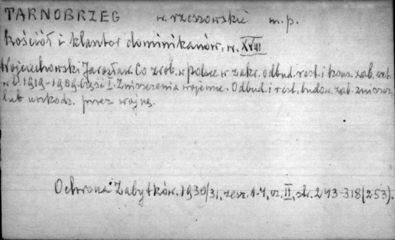 TARNOBRZEG w. rzeszowskie m.p.
Kościół i klasztor dominikanów, w. XVIII
Wojciechowski Jarosław. Co zrob. w Polsce w zakr. odbud. rest. i kons. zab. arch.
w l. 1919-1929. Część I. Zniszczenia wojenne. Odbud. i rest. budow. zab. zniszcz.
lub uszkodz. przez wojnę.
Ochrona Zabytków. 1930/31, zesz. 1-4, cz. II, str. 243-318 (253).